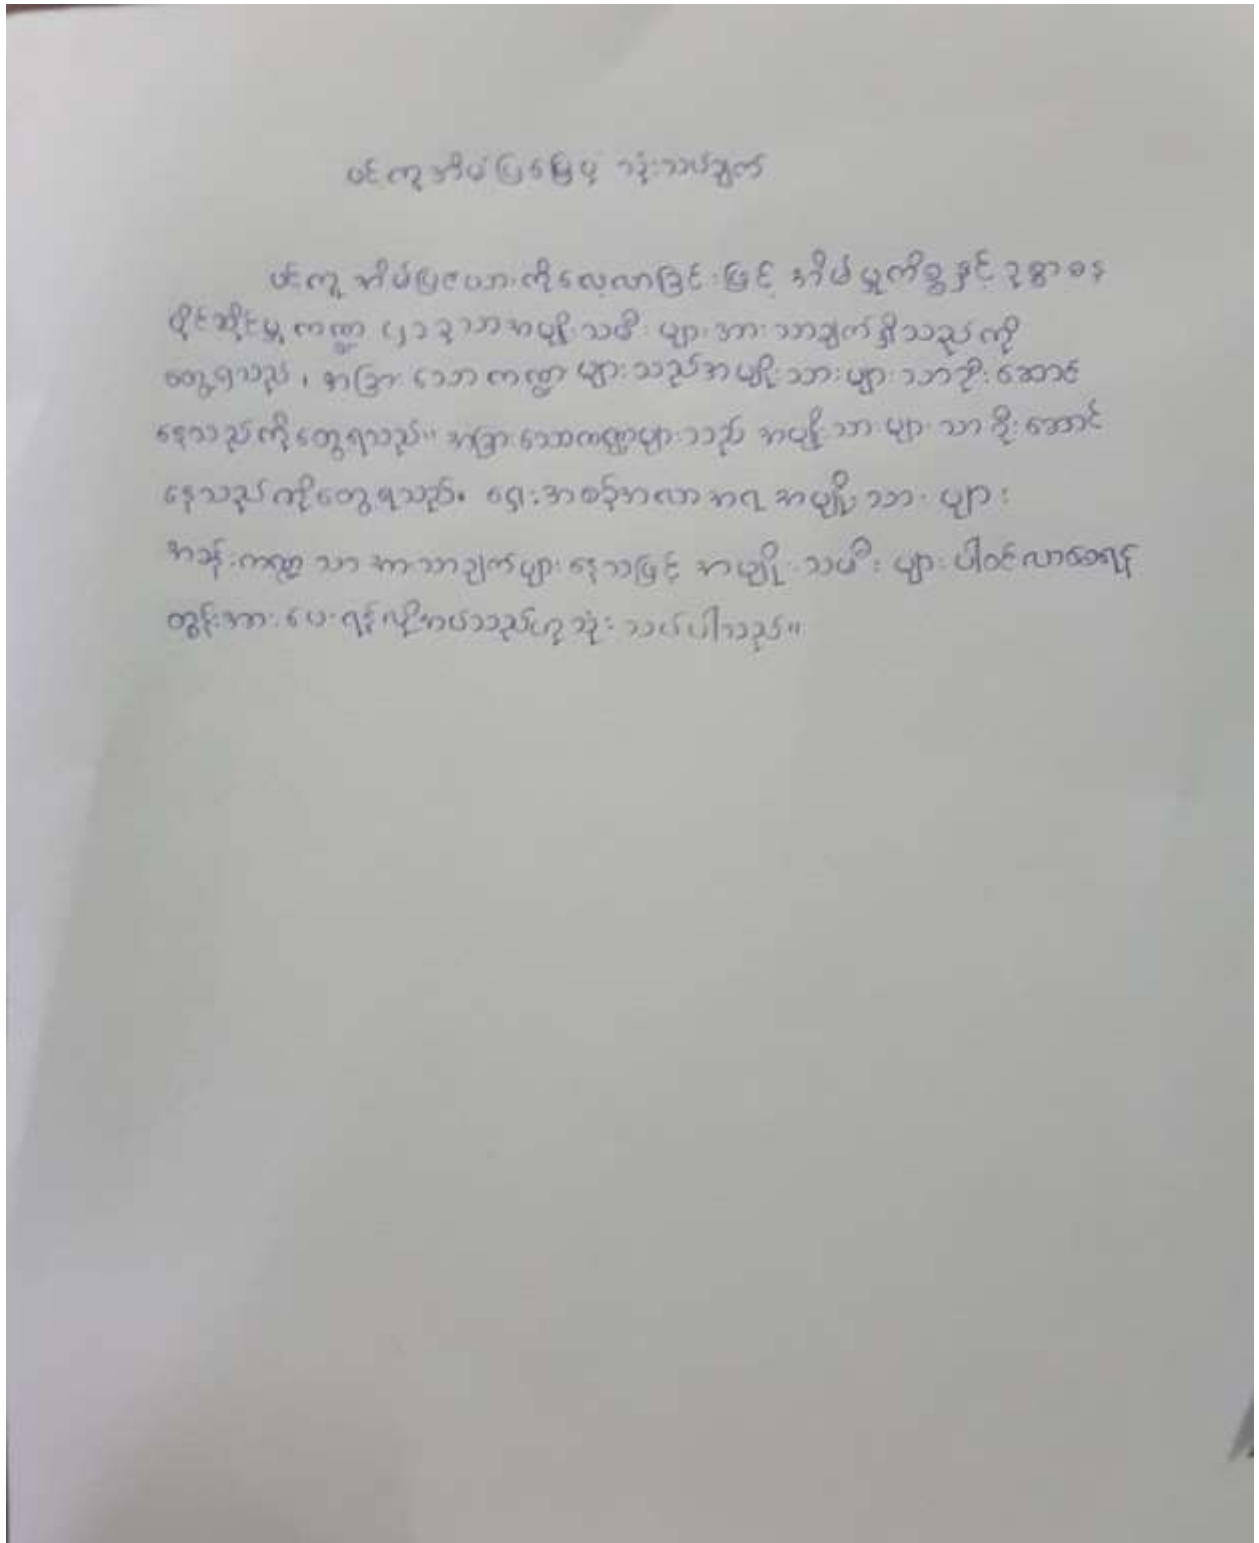 ပင်ကူအိမ်ပြမြေပုံ သုံးသပ်ချက်
ပင်ကူအိမ်ပြဇယားကိုလေ့လာခြင်းဖြင့် အိမ်မှုကိစ္စနှင့် ဥစ္စာဓန
ပိုင်ဆိုင်မှု ကဏ္ဍ ၄၂ ခုသာအမျိုးသမီးများအားသာချက်ရှိသည်ကို
တွေ့ရသည်၊ အခြားသောကဏ္ဍများသည်အမျိုးသားများသာဦးဆောင်
နေသည်ကိုတွေ့ရသည်။ အခြားသောကဏ္ဍများသည် အမျိုးသားများသာဦးဆောင်
နေသည်ကိုတွေ့ရသည်။ ရှေးအစဉ်အလာအရ အမျိုးသားများ
အခန်းကဏ္ဍသာအားသာချက်များနေသဖြင့် အမျိုးသမီးများ ပါဝင်လာစေရန်
တွန်းအားပေးရန်လိုအပ်သည်ဟုသုံးသပ်ပါသည်။